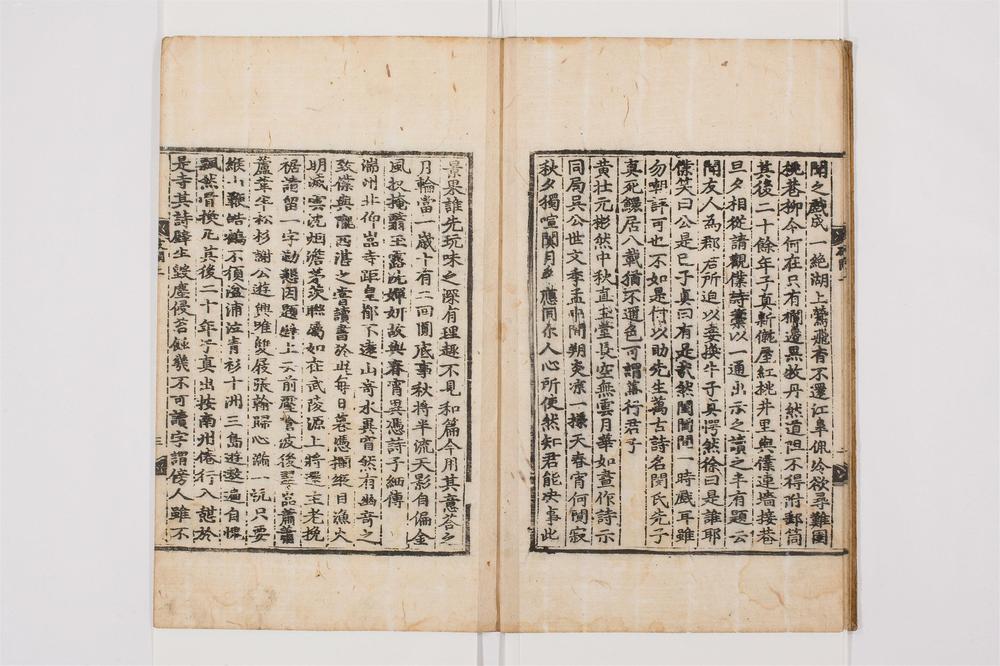 聞之戲成一絶湖上鶯飛有不還江皐佩冷欲尋難園
桃巷柳今何在只有欄邊黒牧丹然道阻不得附郵筒
其後二十餘年子真新僦屋紅桃井里與僕連墻接巷
旦夕相從請觀僕詩藁以一通出示之讀之半有題云
聞友人為郡君所迫以妾換牛子真愕然徐曰是誰耶
僕笑曰公是已子真曰有是我然閨閫間一時戲耳雖
勿嘲評可也不如是何以助先生萬古詩名閔氏先子
真死鰥居八載猶不邇色可謂篤行君子
黄壮元彬然中秋直玉堂長空無雲月華如晝作詩示
同局吴公世文季孟中間朔炎凉一樣天春宵何閙寂
秋夕獨喧闐月應同尓人心所使然知君能决事此
景界誰先玩味之深有理趣不見和篇今用其意荅之
月輪當一歳十有二回圓底事秋將半流天影自偏金
風扠掩翳玉露洗嬋姸故與春宵異憑詩子細傳
湍州北仰嵓寺距皇都不遠山奇水異窅然有幽奇之
致僕與隴西湛之嘗讀書於此每日暮憑欄縱目漁火
明滅雲沈烟澹茅茨聮屬如在武陵源上將還主老挽
裾請留一字勤懇因題壁上云前壓滄波後翠嵒蕭蕭
蘆葦半松杉謝公遊興唯雙屐張翰歸心滿一帆只要
緱山鞭皓鶴不須湓浦泣青衫十洲三島遊遨遍自愧
飄然骨換凡其後二十年子真出按南州倦行入謎於
是寺其詩壁尘毁塵侵苔蝕幾不可讀字謂僧人雖不